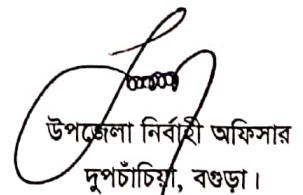 উপজেলা নির্বাহী অফিসার
দুপচাঁচিয়া, বগুড়া।